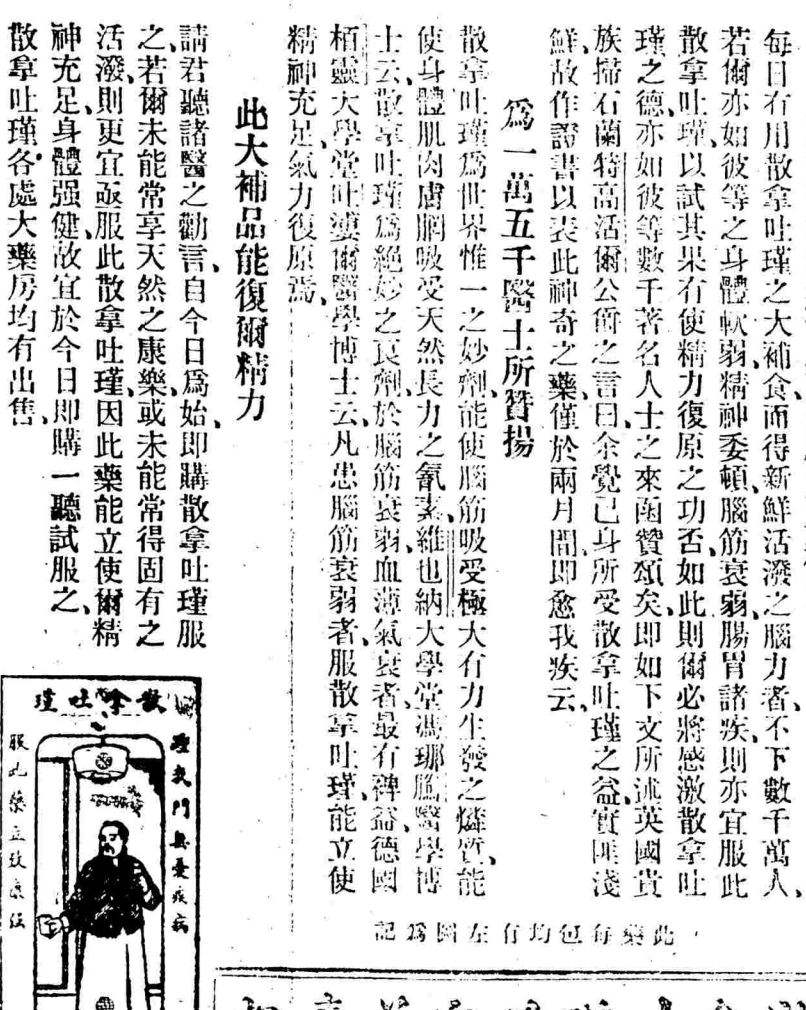 每日有用散拿吐瑾之大補食而得新鮮活潑之腦力者、不下數千萬人、
若爾亦如彼等之身體軟弱、精神委頓、腦筋衰弱、腸胃諸疾、則亦宜服此
散拿吐瑾、以試其果有使精力復原之功否、如此則爾必將感激散拿吐
瑾之德、亦如彼等數千著名人士之來函贊頌矣、即如下文所述英國貴
族掃石蘭特高活爾公爵之言曰、余覺己身所受散拿吐瑾之益、實匪淺
鮮、故作證書以表此神奇之藥、僅於兩月間、即愈我疾云、
爲一萬五千醫士所贊揚
散拿吐瑾爲世界惟一之妙劑、能使腦筋吸受極大有力生發之燐質、能
使身體肌肉膚腘吸受天然長力之氮素、維也納大學堂馮瑯醫學博
士云、散拿吐瑾爲絕妙之良劑、於腦筋衰弱血薄氣衰者、最有裨益、德國
栢靈大學堂吐婁爾醫學博士云、凡患腦筋衰弱者、服散拿吐瑾、能立使
精神充足、氣力復原焉、
此大補品能復爾精力
請君聽諸醫之勸言、自今日爲始、即購散拿吐瑾服
之、若爾未能常享天然之康樂、或未能常得固有之
活潑、則更宜亟服此散拿吐瑾、因此藥能立使爾精
神充足、身體强健、故宜於今日即購一聽試服之、
散拿吐瑾各處大藥房均有出售、
此藥每包均有左圖爲記
散拿吐瑾
疾病
服此藥立致康